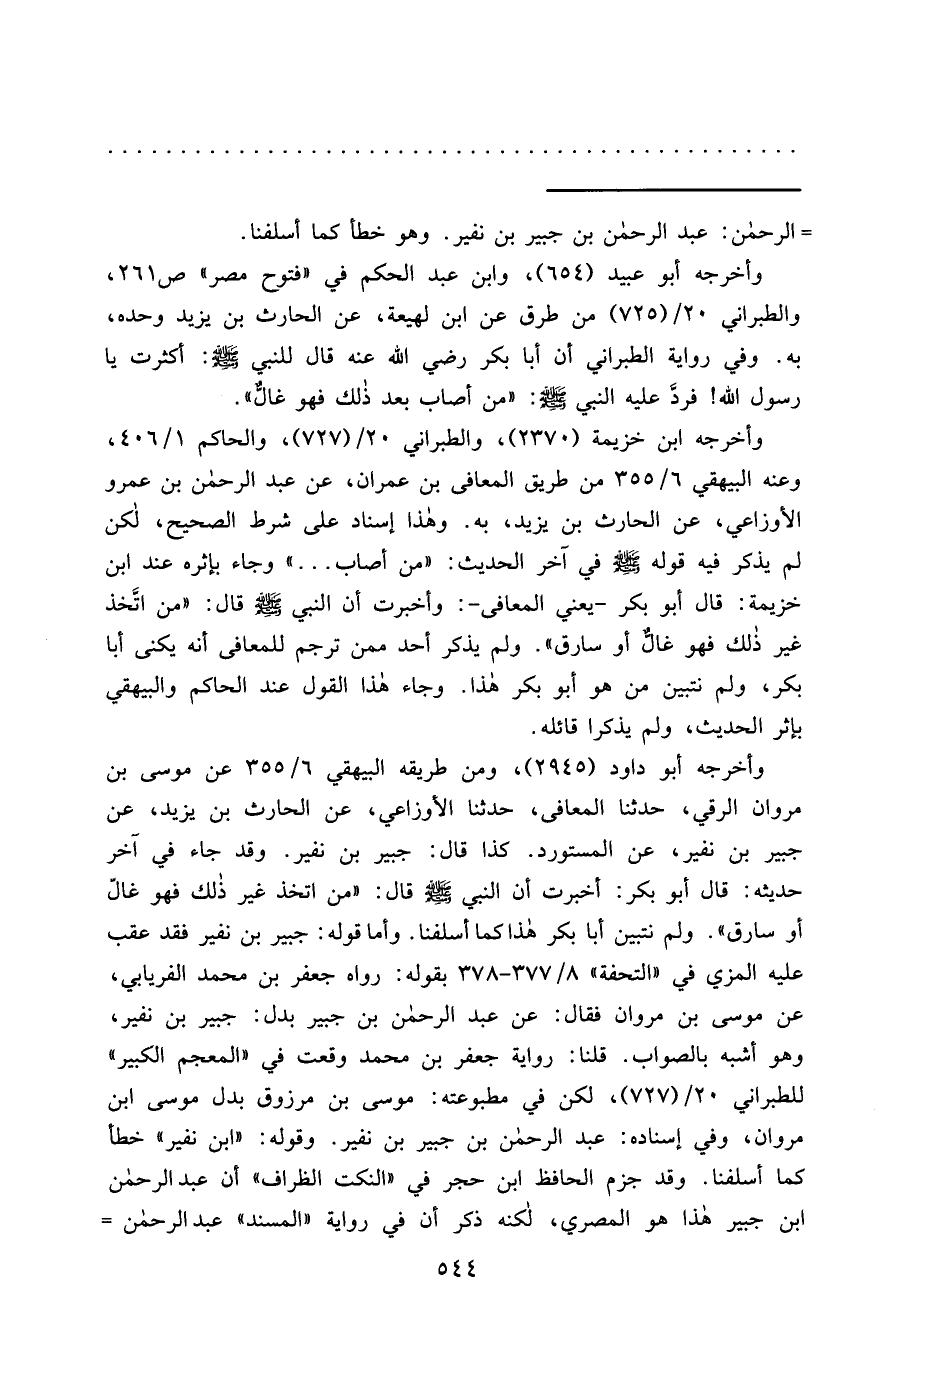 = الرحمٰن: عبد الرحمٰن بن جبير بن نفير. وهو خطأ كما أسلفنا.
وأخرجه أبو عبيد (٦٥٤)، وابن عبد الحكم في «فتوح مصر» ص٢٦١،
والطبراني ٢٠/(٧٢٥) من طرق عن ابن لهيعة، عن الحارث بن يزيد وحده،
به. وفي رواية الطبراني أن أبا بكر رضي الله عنه قال للنبي ﷺ: أكثرت يا
رسول الله! فردَّ عليه النبي ﷺ: «من أصاب بعد ذٰلك فهو غالٌّ».
وأخرجه ابن خزيمة (٢٣٧٠)، والطبراني ٢٠/(٧٢٧)، والحاكم ٤٠٦/١،
وعنه البيهقي ٣٥٥/٦ من طريق المعافى بن عمران، عن عبد الرحمٰن بن عمرو
الأوزاعي، عن الحارث بن يزيد، به. وهٰذا إسناد على شرط الصحيح، لٰكن
لم يذكر فيه قوله ﷺ في آخر الحديث: «من أصاب...» وجاء بإثره عند ابن
خزيمة: قال أبو بكر -يعني المعافى-: وأخبرت أن النبي ﷺ قال: «من اتَّخذ
غير ذٰلك فهو غالٌّ أو سارق». ولم يذكر أحد ممن ترجم للمعافى أنه يكنى أبا
بكر، ولم نتبين من هو أبو بكر هٰذا. وجاء هٰذا القول عند الحاكم والبيهقي
بإثر الحديث، ولم يذكرا قائله.
وأخرجه أبو داود (٢٩٤٥)، ومن طريقه البيهقي ٣٥٥/٦ عن موسى بن
مروان الرقي، حدثنا المعافى، حدثنا الأوزاعي، عن الحارث بن يزيد، عن
جبير بن نفير، عن المستورد. كذا قال: جبير بن نفير. وقد جاء في آخر
حديثه: قال أبو بكر: أخبرت أن النبي ﷺ قال: «من اتخذ غير ذٰلك فهو غالّ
أو سارق». ولم نتبين أبا بكر هٰذا كما أسلفنا. وأما قوله: جبير بن نفير فقد عقب
عليه المزي في «التحفة» ٣٧٧/٨-٣٧٨ بقوله: رواه جعفر بن محمد الفريابي،
عن موسى بن مروان فقال: عن عبد الرحمٰن بن جبير بدل: جبير بن نفير،
وهو أشبه بالصواب. قلنا: رواية جعفر بن محمد وقعت في «المعجم الكبير»
للطبراني ٢٠/(٧٢٧)، لكن في مطبوعته: موسى بن مرزوق بدل موسى ابن
مروان، وفي إسناده: عبد الرحمٰن بن جبير بن نفير. وقوله: «ابن نفير» خطأ
كما أسلفنا. وقد جزم الحافظ ابن حجر في «النكت الظراف» أن عبد الرحمٰن
ابن جبير هٰذا هو المصري، لٰكنه ذكر أن في رواية «المسند» عبد الرحمٰن =
٥٤٤